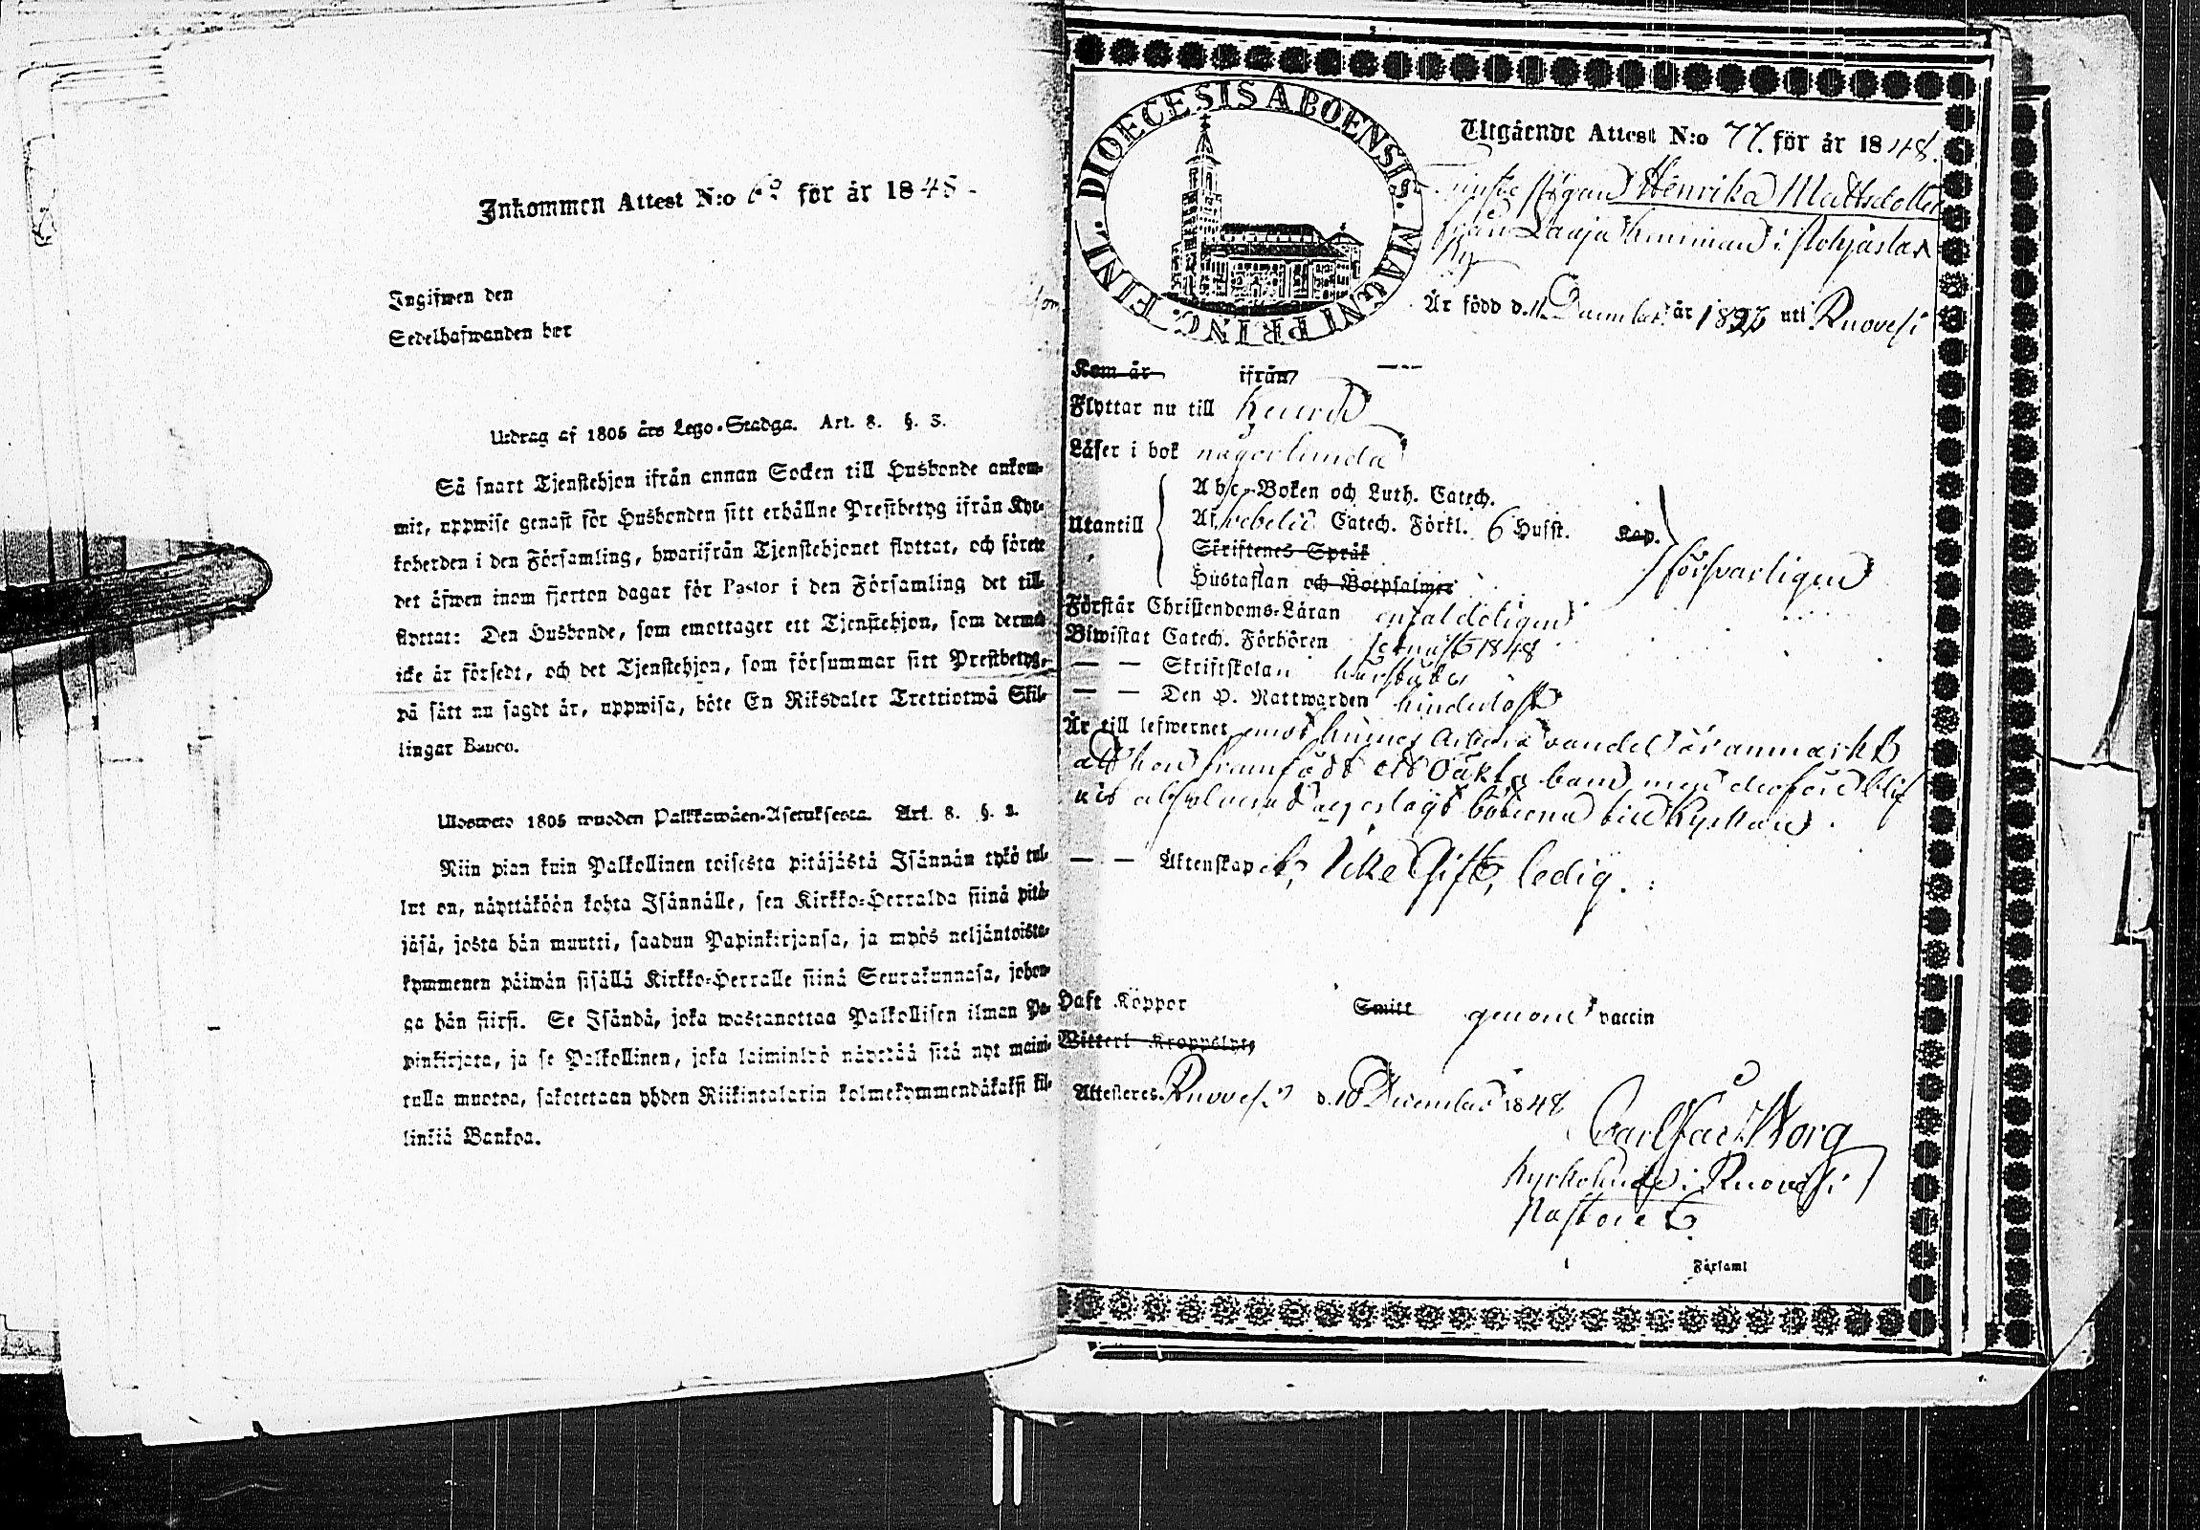 Inkommen Attest N:o 6 för år 1848
Ingifwen den
Sedelhafwanden bær
Utdrag af 1805 års Lego-Stadga. Art. 8. §. 3.
Så snart Tjenstehjon ifrån annan Socken till Husbonde ankom-
mit, uppwise genast för Husbonden sitt erhållne Prestbetyg ifrån Kyr-
koherden i den Församling, hwarifrån Tjenstehjonet flyttat, och förete
det äfwen inom fjorton dagar för Pastor i den Församling det till-
flyttat: Den Husbonde, som emottager ett Tjenstehjon, som dermed
icke är försedt, och det Tjenstehjon, som försummar sitt Prestbetyg,
på sätt nu sagdt är, uppwisa, böte En Riksdaler Trettiotwå Skil-
lingar Banco.
Ulosweto 1805 wuoden Palkkawäen-Asetuksesta. Art. 8. §. 3.
Niin pian kuin Palkollinen toisesta pitäjästä Isännän tykö tul-
lut on, näyttäköön kohta Isännälle, sen Kirkko-Herralda siinä pitä-
jäsä, josta hän muutti, saadun Papinkirjansa, ja myös neljäntoista-
kymmenen päiwän sisällä Kirkko-Herralle siinä Seurakunnasa, johon-
ga hän siirsi. Se Isändä, joka wastanottaa Palkollisen ilman Pa-
pinkirjata, ja se Palkollinen, joka laiminlyö näyttää sitä nyt maini-
tulla muotoa, sakotetaan yhden Riikintalarin kolmekymmendäkaksi kil-
linkiä Bankoa.
DIOECESIS ABOENSIS. MAGNI PRINC. FINL.
Utgående Attest N:o 77. för år 1848.
Henrika Mattsdotter
från Laaja hemman i Pohjaslax
By
Är född d. 11 December år 1826 uti Ruovesi
Kom år ifrån
Flyttar nu till Keuru
Läser i bok någorlunda
Abc-Boken och Luth. Catech.
Utantill Svebelii Catech. Förkl. 6 Hufst. Kap.
Skriftenes Språk försvarligen
Hustaflan och Botpsalmer
Förstår Christendoms-Läran enfaldeligen
Biwistat Catech. Förhören senast 1848
— — Skriftskolan
— — Den H. Nattwarden hinderlöst
Är till lefwernet emot hennes vandel är anmärkt
att hon framfödt ett oäkta barn men derföre blif
vit absolverad erlagt böterna till Kyrkan.
— — Äktenskapet, Icke Gift, ledig.
Haft Koppor Smitt genom vaccin
Witterl. Kroppslyte
Attesteres. Ruovesi d. 10 December 1848
Carl Borg
Kyrkoherde i Ruovesi
Pastorat
Församl